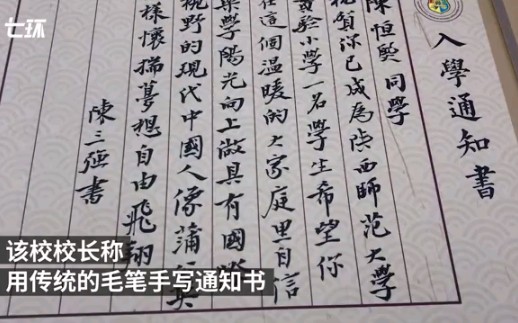 七环
入學通知書
陳恒 同學
祝賀你已成為陝西師范大學
實驗小學一名學生希望你
在這個溫暖的大家庭里自信
樂學陽光向上做具有國際
視野的現代中國人像蒲 英
樣懷揣夢想自由飛翔
陳三 書
该校校长称
用传统的毛笔手写通知书